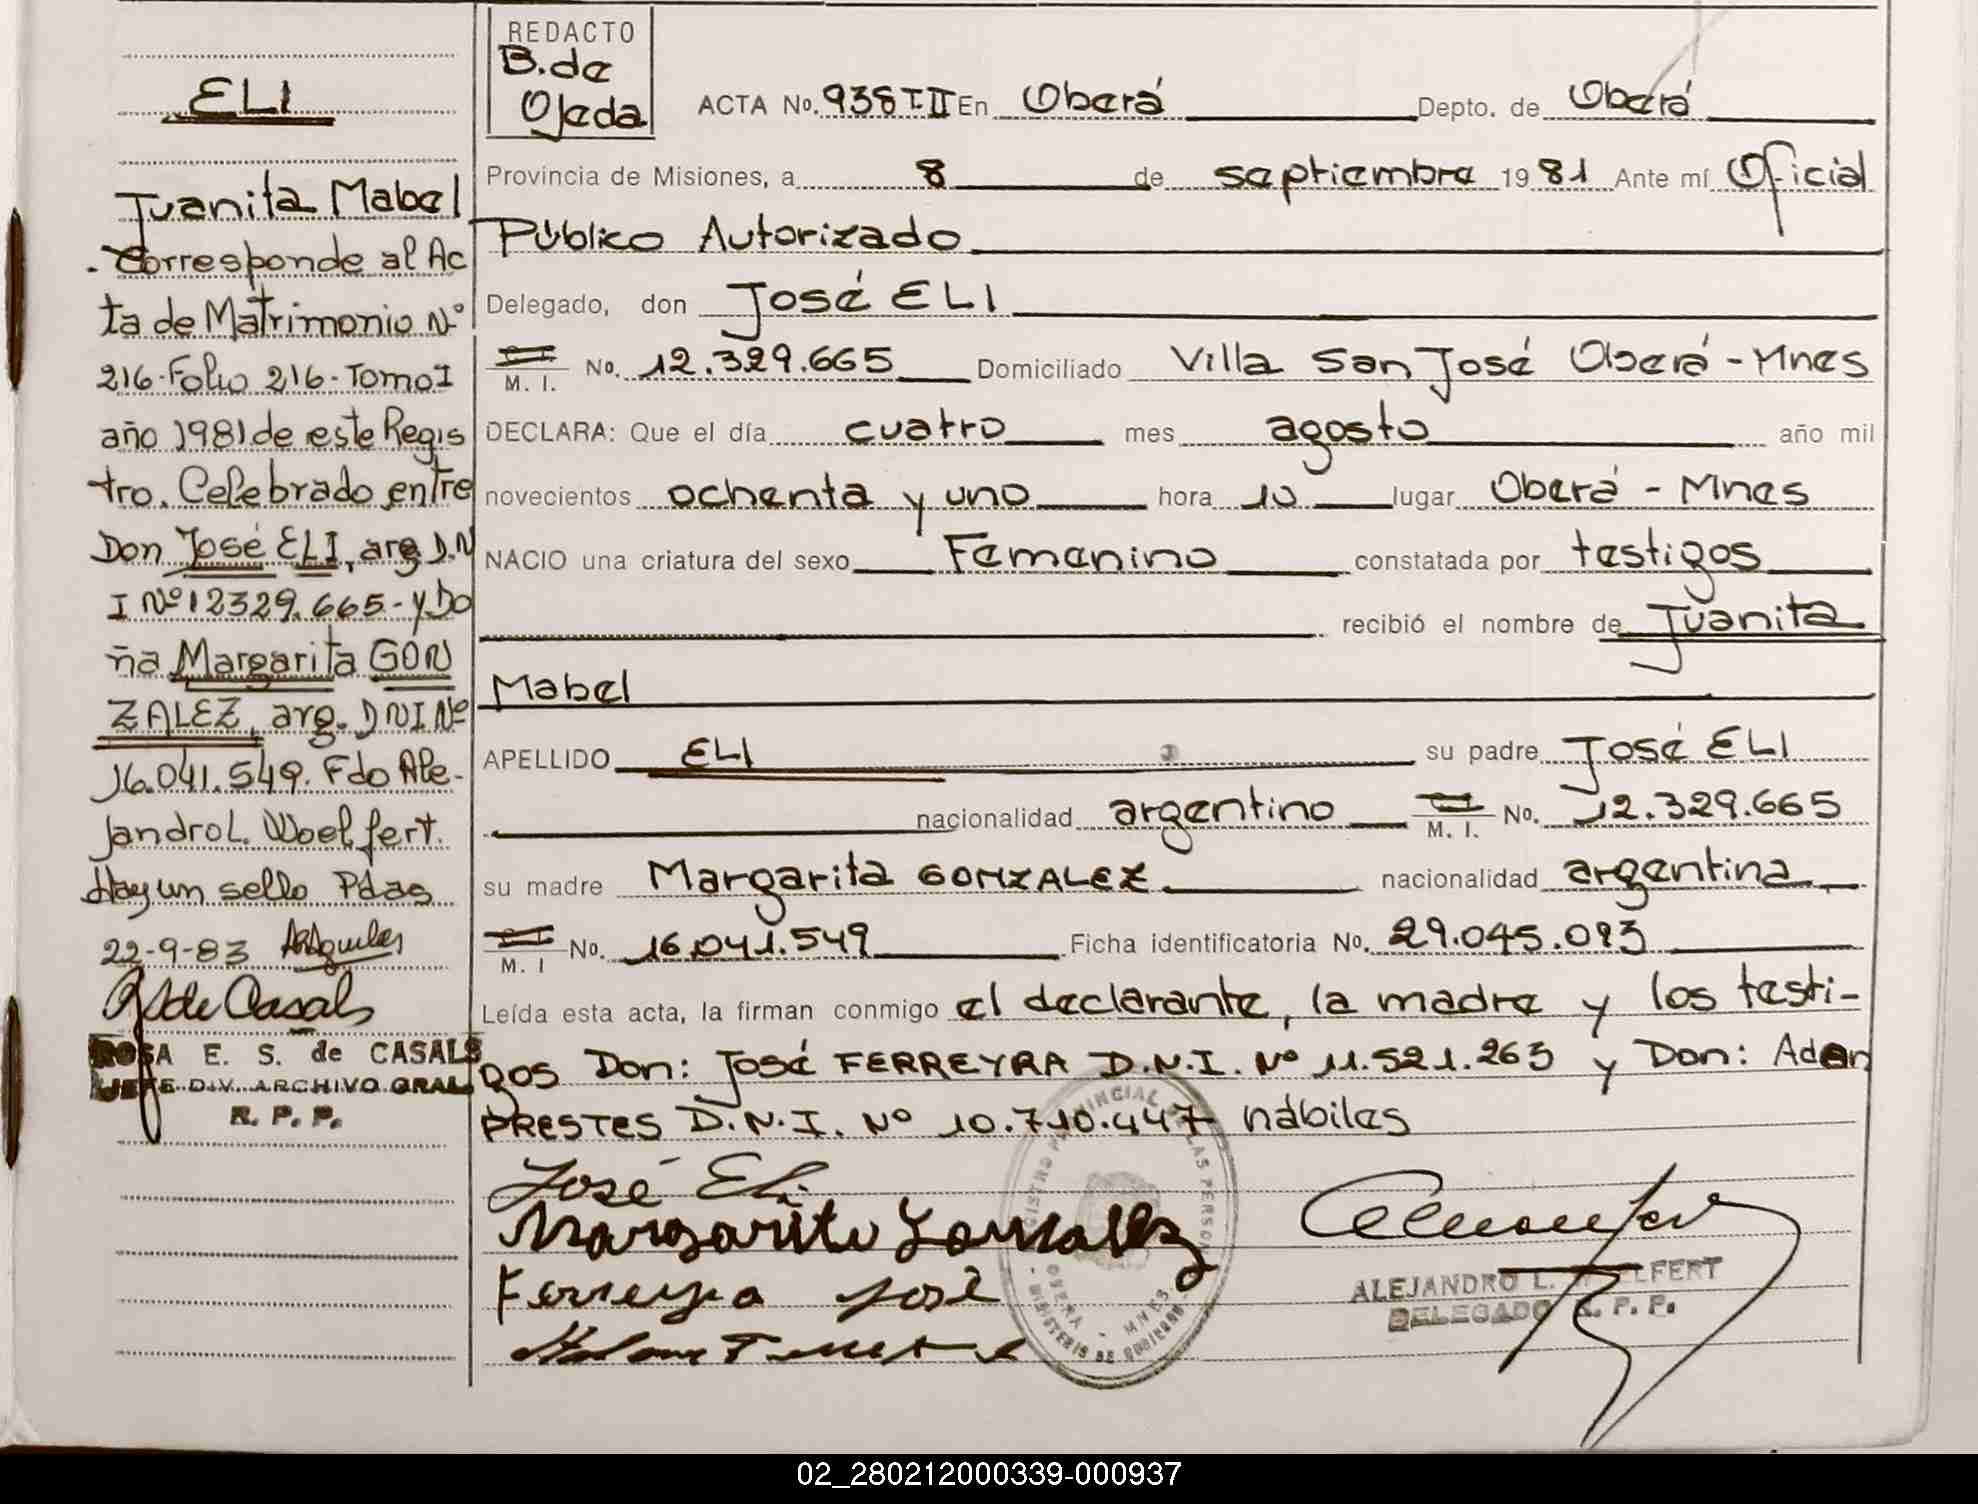 ELI
Juanita Mabel
Corresponde al Ac
ta de Matrimonio Nº
216-Folio 216-Tomo I
año 1981 de este Regis
tro. Celebrado entre
Don José ELI, arg D.N
I Nº 12329.665-y Do
ña Margarita GON
ZALEZ, arg. DNI Nº
16.041.549. Fdo Ale-
jandro L. Woelfert.
Hay un sello Pdas
22-9-83
de Casals
ROSA E. S. de CASALS
JEFE DIV. ARCHIVO GRAL
R. P. P.
REDACTO
B. de
Ojeda
ACTA No. 938 T-II En Oberá Depto. de Oberá
Provincia de Misiones, a 8 de septiembre 1981 Ante mí Oficial
Público Autorizado
Delegado, don José ELI
C. I. M. I. No. 12.329.665 Domiciliado Villa San José Oberá - Mnes
DECLARA: Que el día cuatro mes agosto año mil
novecientos ochenta y uno hora 10 lugar Oberá - Mnes
NACIO una criatura del sexo Femenino constatada por testigos
recibió el nombre de Juanita
Mabel
APELLIDO ELI su padre José ELI
nacionalidad argentino C. I. M. I. No. 12.329.665
su madre Margarita GONZALEZ nacionalidad argentina
C. I. M. I No. 16.041.549 Ficha identificatoria No. 29.045.093
Leída esta acta, la firman conmigo el declarante, la madre y los testi-
gos Don: José FERREYRA D.N.I. Nº 11.521.263 y Don: Adan
PRESTES D.N.I. Nº 10.710.447 hábiles
José Eli
Margarita Gonzalez
Ferreyra José
REGISTRO PROVINCIAL DE LAS PERSONAS
OBERA - MNES
MINISTERIO DE GOBIERNO
ALEJANDRO L. WOELFERT
DELEGADO R. P. P.
02_280212000339-000937